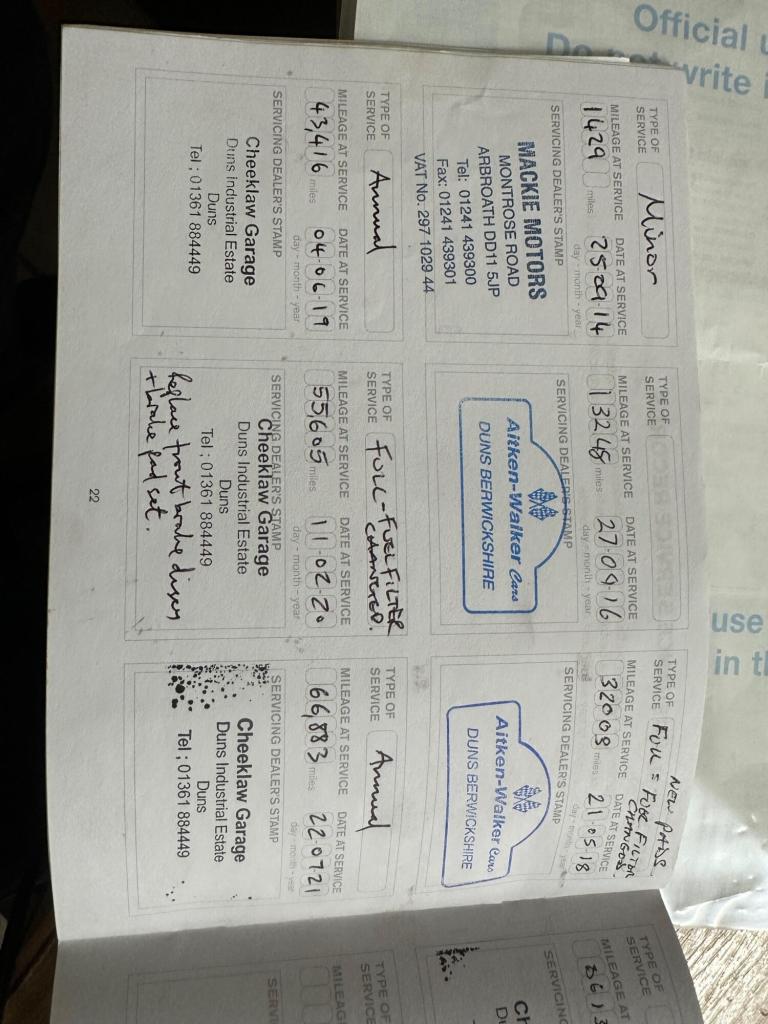 Official
Do not write
use
in
TYPE OF SERVICE Minor
MILEAGE AT SERVICE DATE AT SERVICE
1429 miles 25 09 14
day - month - year
SERVICING DEALER'S STAMP
MACKIE MOTORS
MONTROSE ROAD
ARBROATH DD11 5JP
Tel: 01241 439300
Fax: 01241 439301
VAT No. 297 1029 44
TYPE OF SERVICE
MILEAGE AT SERVICE DATE AT SERVICE
13248 miles 27·09·16
day - month - year
SERVICING DEALER'S STAMP
Aitken-Walker Cars
DUNS BERWICKSHIRE
NEW PADS
TYPE OF SERVICE FULL = FUEL FILTER
CHANGED
MILEAGE AT SERVICE DATE AT SERVICE
32009 miles 21·05·18
day - month - year
SERVICING DEALER'S STAMP
Aitken-Walker Cars
DUNS BERWICKSHIRE
TYPE OF SERVICE Annual
MILEAGE AT SERVICE DATE AT SERVICE
43,416 miles 04·06·19
day - month - year
SERVICING DEALER'S STAMP
Cheeklaw Garage
Duns Industrial Estate
Duns
Tel ; 01361 884449
TYPE OF SERVICE FULL-FUEL FILTER
CHANGED.
MILEAGE AT SERVICE DATE AT SERVICE
55,605 miles 11·02·20
day - month - year
SERVICING DEALER'S STAMP
Cheeklaw Garage
Duns Industrial Estate
Duns
Tel ; 01361 884449
Replace front brake discs
+ brake pad set.
TYPE OF SERVICE Annual
MILEAGE AT SERVICE DATE AT SERVICE
66,883 miles 22·07·21
day - month - year
SERVICING DEALER'S STAMP
Cheeklaw Garage
Duns Industrial Estate
Duns
Tel ; 01361 884449
22
TYPE OF SERVICE
MILEAGE AT
SERVICING
TYPE OF SERVICE
MILEAG
SERVI